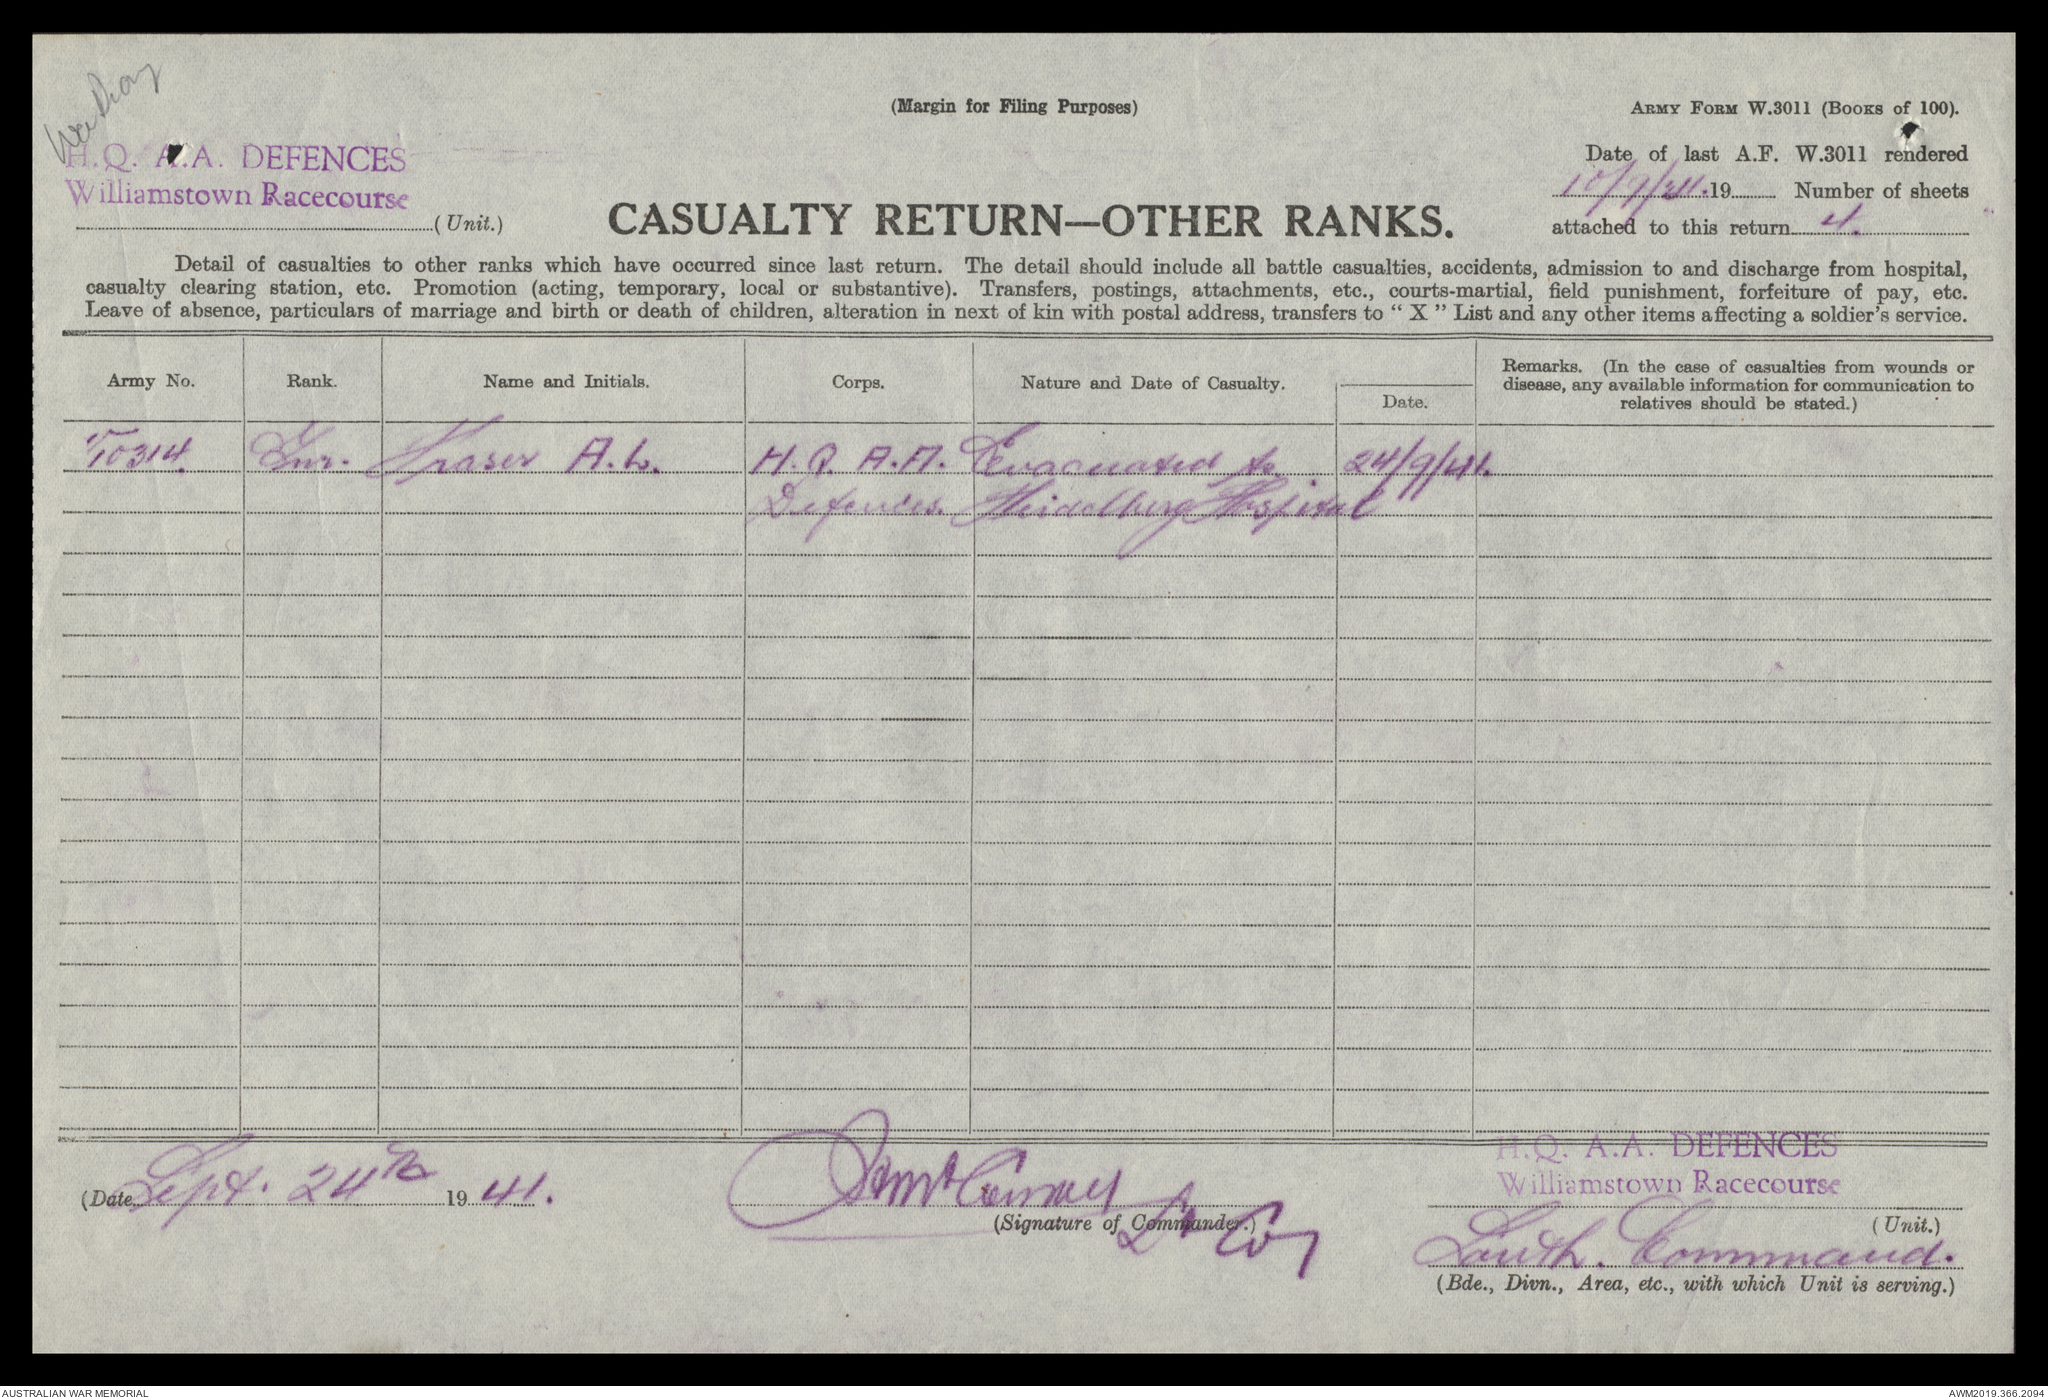 (Margin for Filing Purposes)
ARMY FORM W.3011 (BOOKS of 100).
H.Q. A.A. DEFENCES
Williamstown Racecourse
(Unit.)
CASUALTY RETURN—OTHER RANKS.
Date of last A.F. W.3011 rendered
10/9/41. 19 Number of sheets
attached to this return 4.
Detail of casualties to other ranks which have occurred since last return. The detail should include all battle casualties, accidents, admission to and discharge from hospital,
casualty clearing station, etc. Promotion (acting, temporary, local or substantive). Transfers, postings, attachments, etc., courts-martial, field punishment, forfeiture of pay, etc.
Leave of absence, particulars of marriage and birth or death of children, alteration in next of kin with postal address, transfers to “ X ” List and any other items affecting a soldier’s service.
Army No. Rank. Name and Initials. Corps. Nature and Date of Casualty. Date.
Remarks. (In the case of casualties from wounds or
disease, any available information for communication to
relatives should be stated.)
V10314. Gnr. Fraser A.L. H.Q. A.A. Evacuated to 24/9/41.
Defences. Heidelberg Hospital
(Date Sept. 24th 19 41.
(Signature of Commander.)
H.Q. A.A. DEFENCES
Williamstown Racecourse
(Unit.)
South. Command.
(Bde., Divn., Area, etc., with which Unit is serving.)
AUSTRALIAN WAR MEMORIAL
AWM2019.366.2094